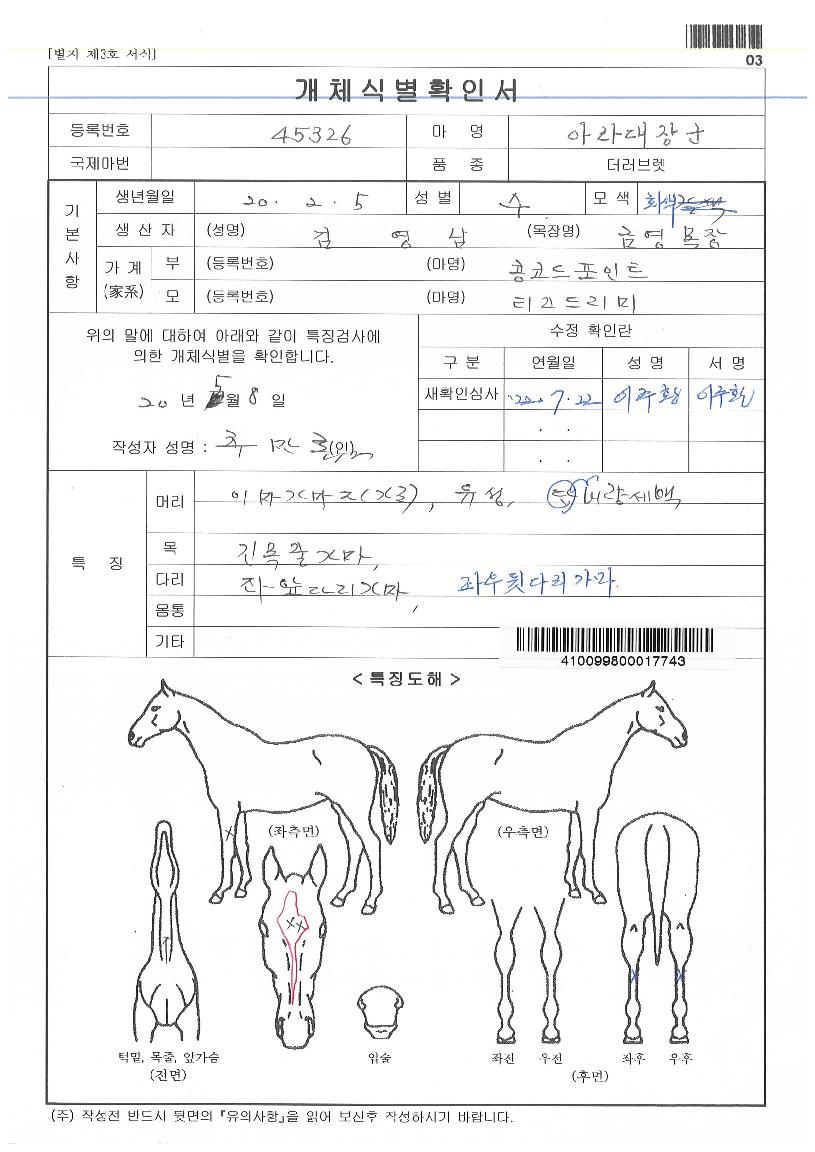 [별지 제3호 서식]
03
개체식별확인서
등록번호 45326 마 명 아라대장군
국제마번 품 종 더러브렛
기본사항
생년월일 20. 2. 5 성 별 수 모 색 회색
생 산 자 (성명) 김 영 남 (목장명) 금영목장
가 계 (家系) 부 (등록번호) (마명) 콩코드포인트
모 (등록번호) (마명) 티즈드리미
위의 말에 대하여 아래와 같이 특징검사에
의한 개체식별을 확인합니다.
20 년 5월 8 일
작성자 성명 : (인)
수정 확인란
구 분 연월일 성 명 서 명
재확인심사 '22. 7. 22
. .
. .
특 징
머리 이마가마 (X3), 유성, 비량세백
목 긴목줄가마,
다리 좌앞다리가마, 좌우뒷다리가마.
몸통
기타
410099800017743
< 특징도해 >
(좌측면) (우측면)
턱밑, 목줄, 앞가슴 입술 좌전 우전 좌후 우후
(전면) (후면)
(주) 작성전 반드시 뒷면의 『유의사항』을 읽어 보신후 작성하시기 바랍니다.